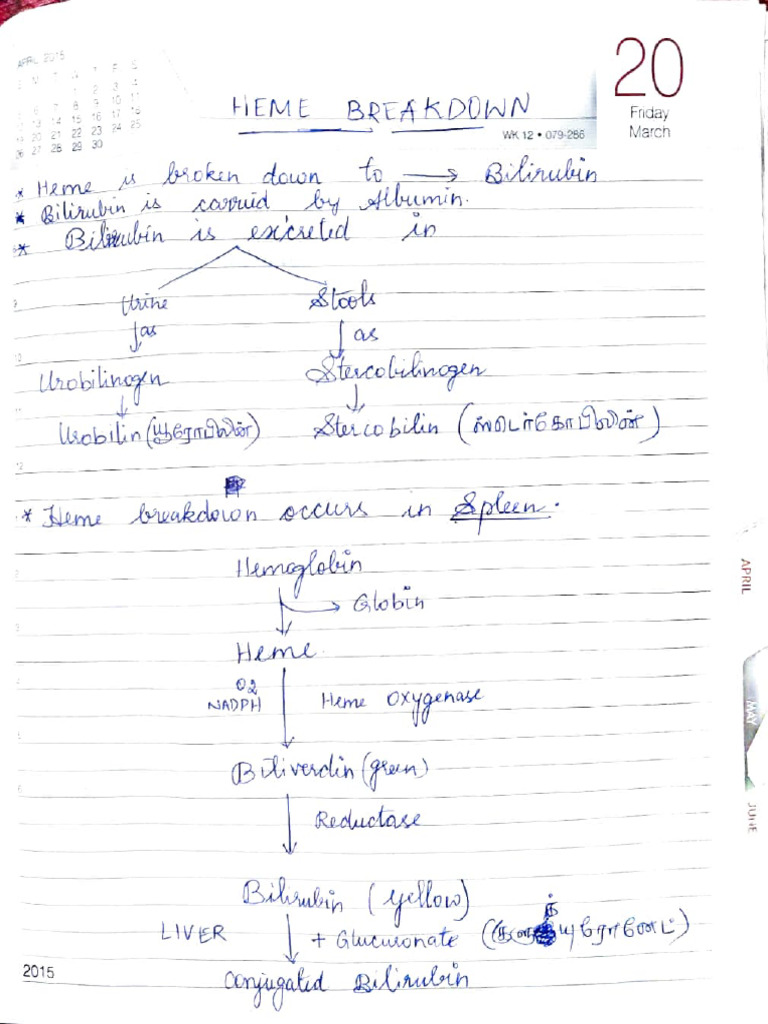 APRIL 2015
S M T W T F S
1 2 3 4
5 6 7 8 9 10 11
12 13 14 15 16 17 18
19 20 21 22 23 24 25
26 27 28 29 30
20
Friday
March
HEME BREAKDOWN
WK 12 • 079-286
* Heme is broken down to → Bilirubin
* Bilirubin is carried by Albumin.
* Bilirubin is excreted in
9
Urine Stools
↓as ↓as
10
Urobilinogen Stercobilinogen
↓ ↓
11
Urobilin (யூரோபிலின்) Stercobilin (ஸ்டெர்கோபிலின்)
12
* Heme breakdown occurs in Spleen.
Hemoglobin
→ Globin
3
Heme
O2
NADPH Heme Oxygenase
Biliverdin (green)
6
Reductase
Bilirubin (yellow)
LIVER + Glucuronate
2015
Conjugated Bilirubin
APRIL
MAY
JUNE